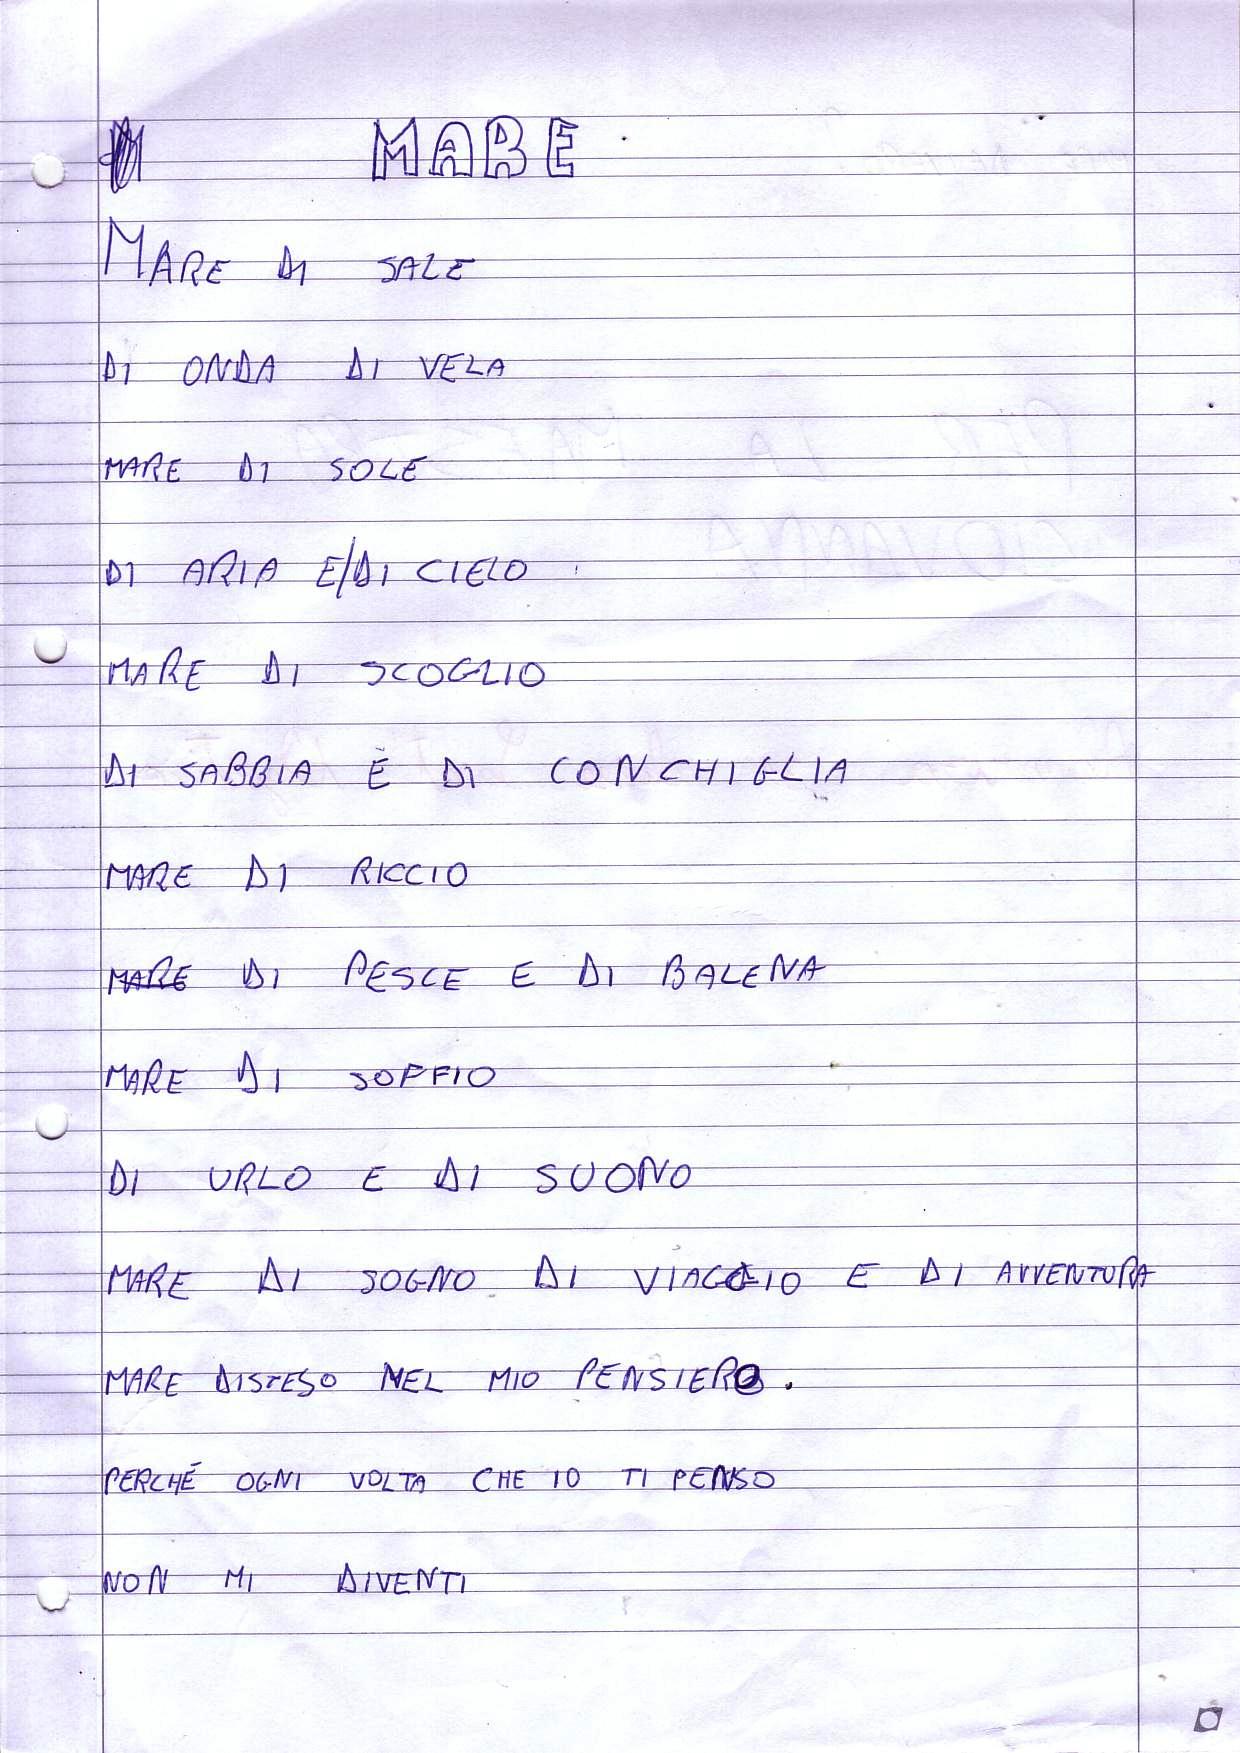 MARE
MARE DI SALE
DI ONDA DI VELA
MARE DI SOLE
DI ARIA E/DI CIELO
MARE DI SCOGLIO
DI SABBIA E DI CONCHIGLIA
MARE DI RICCIO
MARE DI PESCE E DI BALENA
MARE DI SOFFIO
DI URLO E DI SUONO
MARE DI SOGNO DI VIAGGIO E DI AVVENTURA
MARE DISTESO NEL MIO PENSIERO.
PERCHÉ OGNI VOLTA CHE IO TI PENSO
NON MI DIVENTI